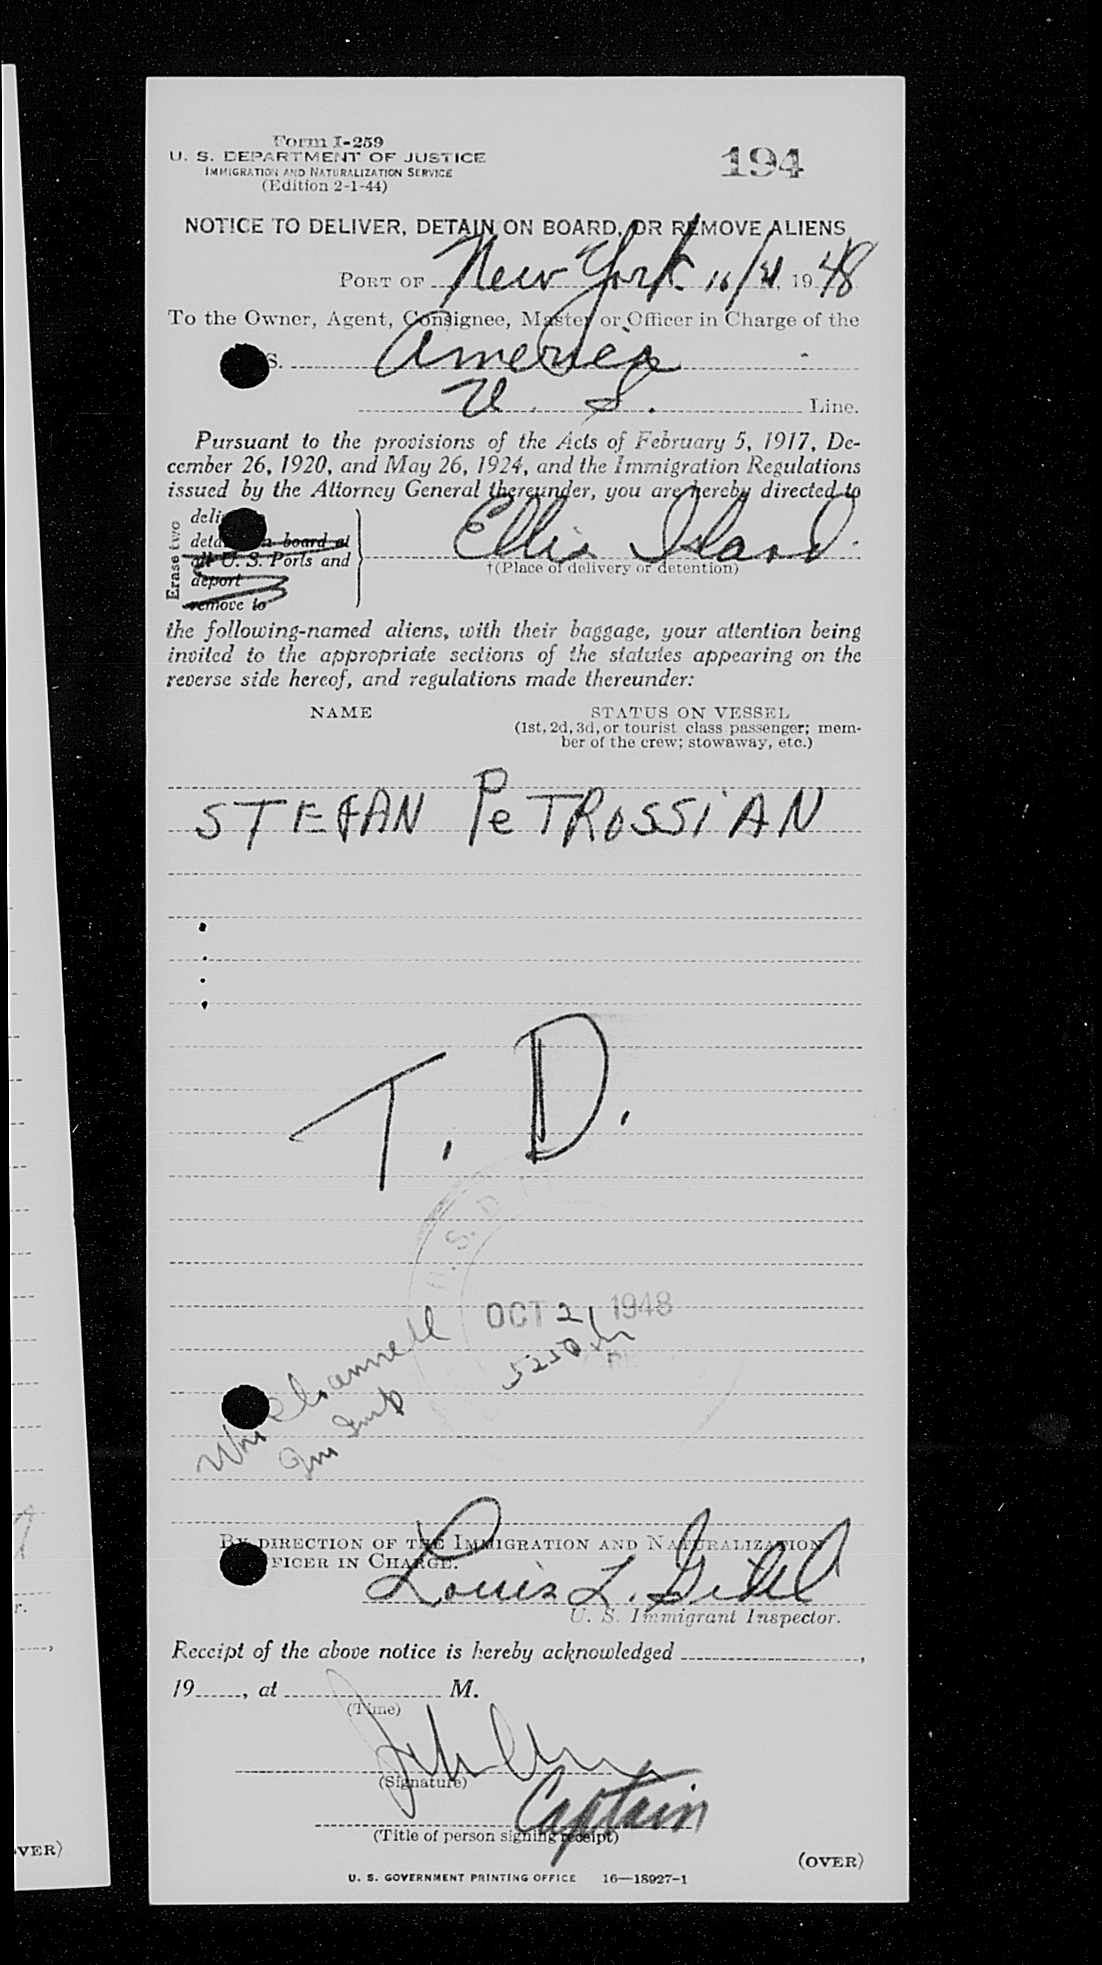 Form I-259
U. S. DEPARTMENT OF JUSTICE
IMMIGRATION AND NATURALIZATION SERVICE
(Edition 2-1-44)
194
NOTICE TO DELIVER, DETAIN ON BOARD, OR REMOVE ALIENS
PORT OF New York 10/21 1948
To the Owner, Agent, Consignee, Master or Officer in Charge of the
S. America
U. S. Line.
Pursuant to the provisions of the Acts of February 5, 1917, De-
cember 26, 1920, and May 26, 1924, and the Immigration Regulations
issued by the Attorney General thereunder, you are hereby directed to
Erase two
deli
deta n board at
all U. S. Ports and
deport
remove to
Ellis Island.
†(Place of delivery or detention)
the following-named aliens, with their baggage, your attention being
invited to the appropriate sections of the statutes appearing on the
reverse side hereof, and regulations made thereunder:
NAME STATUS ON VESSEL
(1st, 2d, 3d, or tourist class passenger; mem-
ber of the crew; stowaway, etc.)
STEFAN PeTROSSiAN
T. D.
S. D
OCT 21 1948
Wm Channell
By DIRECTION OF THE IMMIGRATION AND NATURALIZATION
FFICER IN CHARGE.
Louis L.
U. S. Immigrant Inspector.
Receipt of the above notice is hereby acknowledged
19 , at M.
(Time)
(Signature)
Captain
(Title of person signing receipt)
(OVER)
U. S. GOVERNMENT PRINTING OFFICE 16—18927-1
r.
VER)